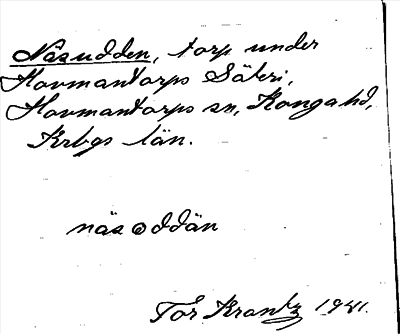 Näsudden, torp under
Hovmantorps Säteri,
Hovmantorps sn, Konga hd,
Krbgs län.
näs oddän
Tor Krantz 1941.